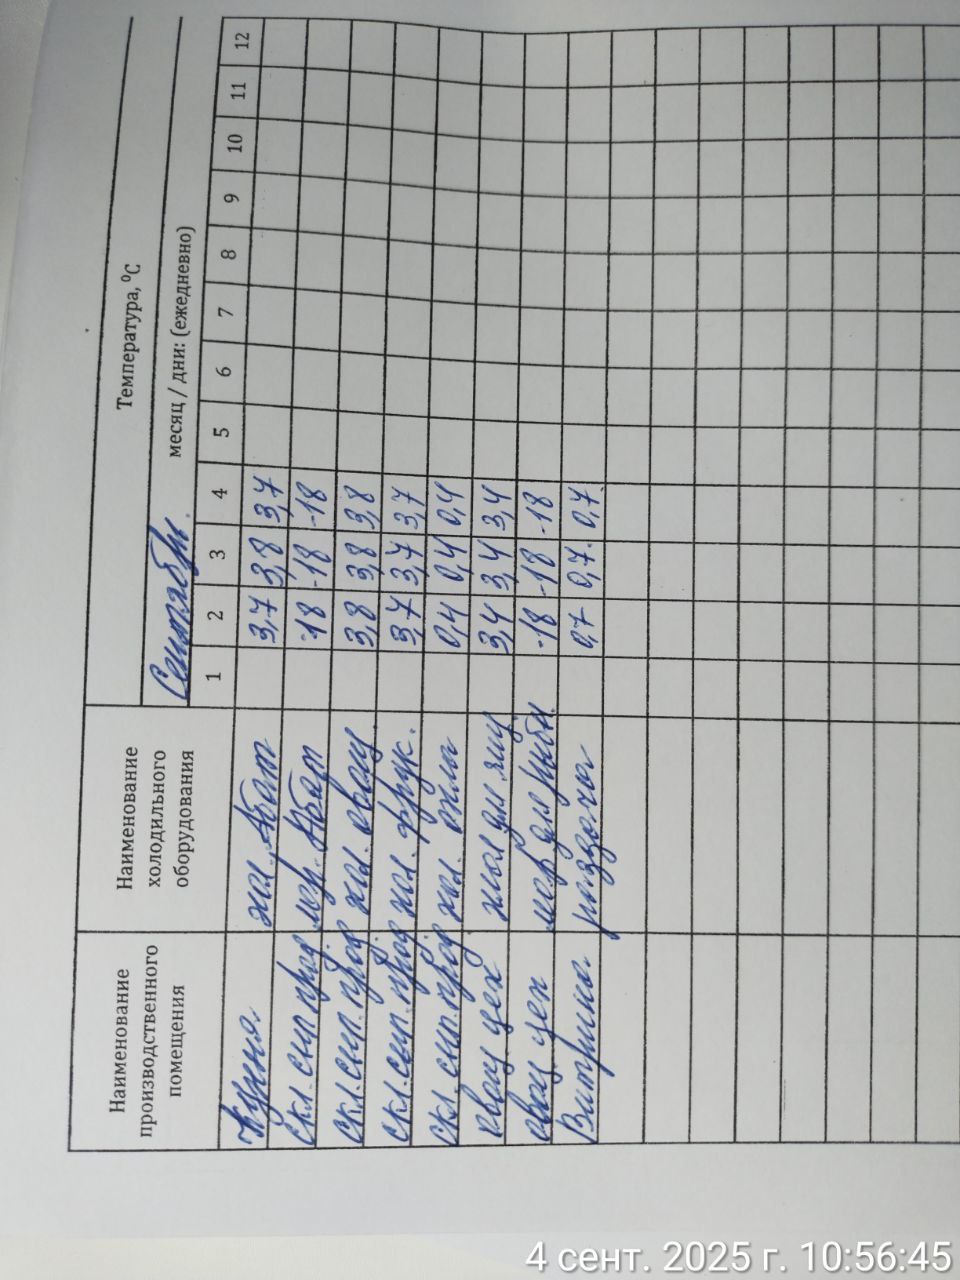 Наименование производственного помещения | Наименование холодильного оборудования | Температура, ⁰С
Сентябрь. месяц / дни: (ежедневно)
1 2 3 4 5 6 7 8 9 10 11 12
Кухня. хол. Абат 3,7 3,8 3,7
скл. сып прод мор. Абат -18 -18 -18
скл. сып. прод хол. овощ 3,8 3,8 3,8
скл. сып. прод хол. фрук. 3,7 3,7 3,7
скл. сып. прод хол. 0,4 0,4 0,4
овощ цех хол для яиц 3,4 3,4 3,4
овощ цех мор для рыбы -18 -18 -18
Витрина. раздача 0,7 0,7. 0,7.
4 сент. 2025 г. 10:56:45